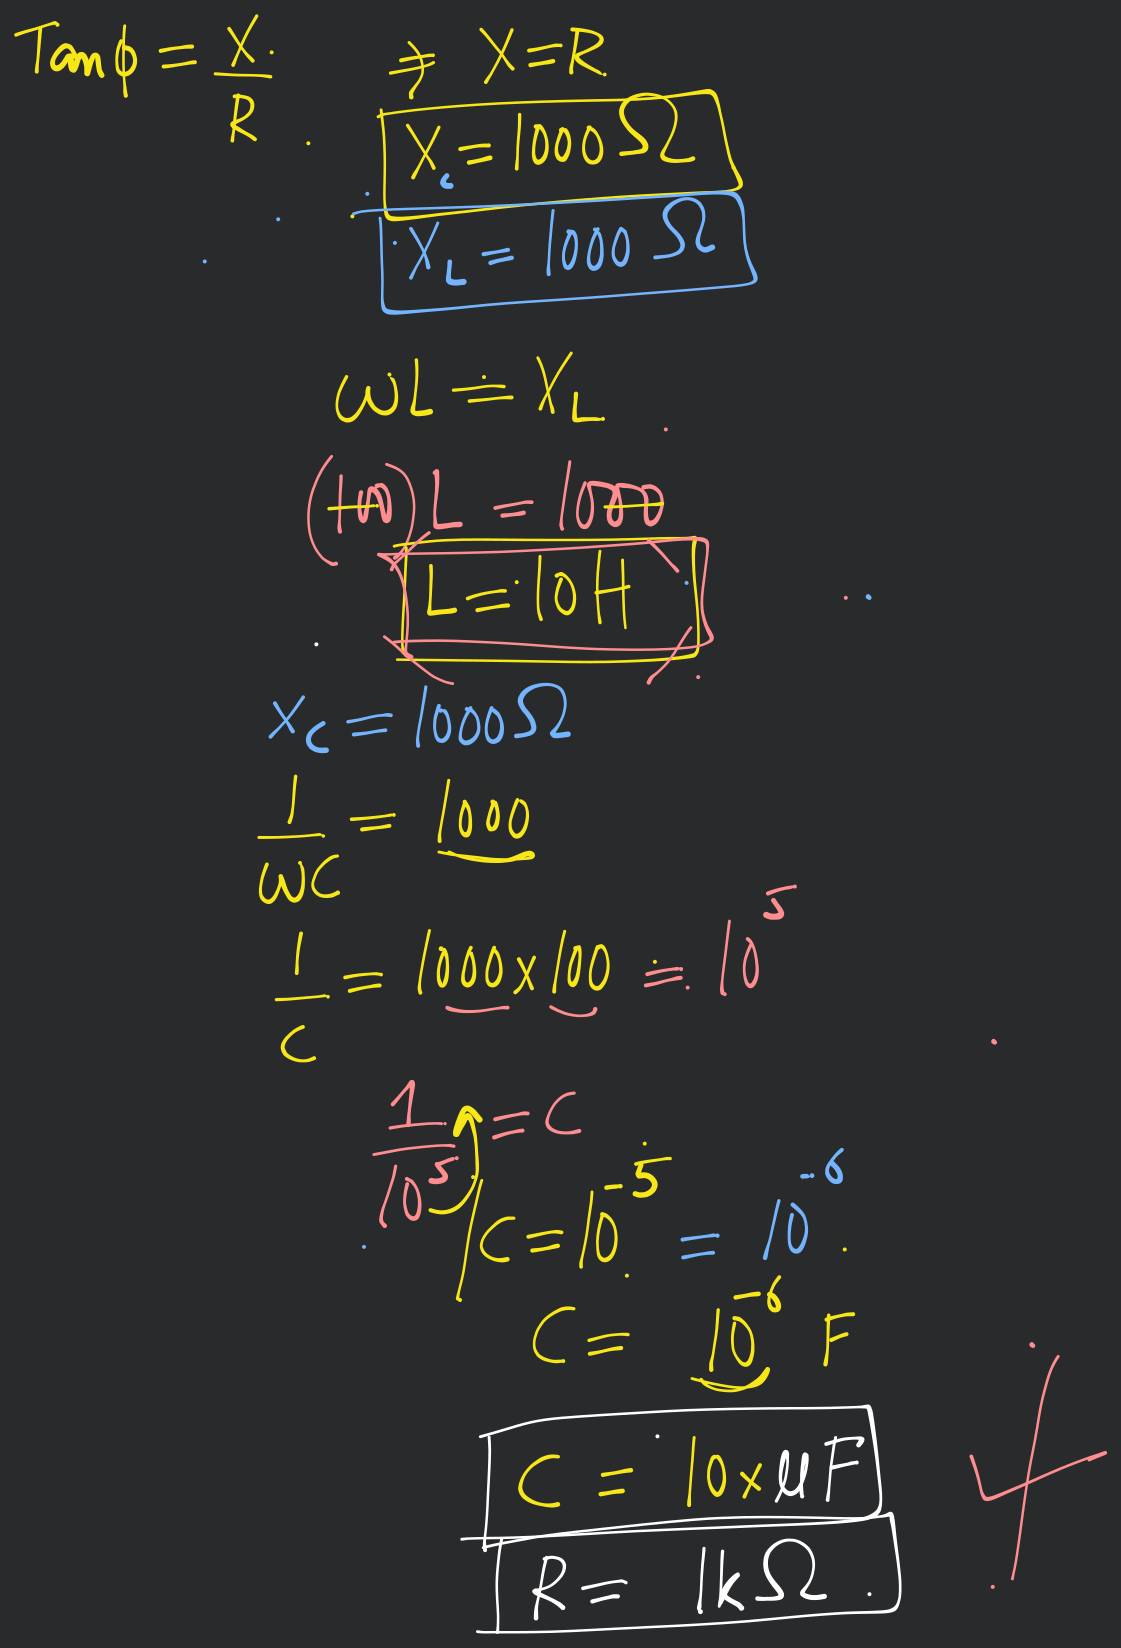 Tanϕ = X/R ⇒ X = R
X_c = 1000 Ω
X_L = 1000 Ω
ωL = X_L
(100) L = 1000
L = 10 H
X_c = 1000 Ω
1/ωC = 1000
1/C = 1000 x 100 = 10^5
1/10^5 = C
C = 10^-5 = 10^-6
C = 10^-6 F
C = 10 x μF
R = 1kΩ